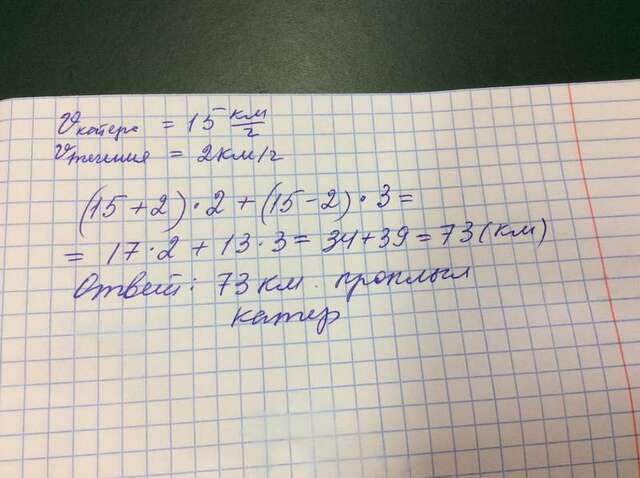 Vкатера = 15 км/ч
Vтечения = 2км/ч
(15+2)·2+(15-2)·3=
= 17·2+13·3= 34+39=73(км)
Ответ: 73 км. проплыл
катер